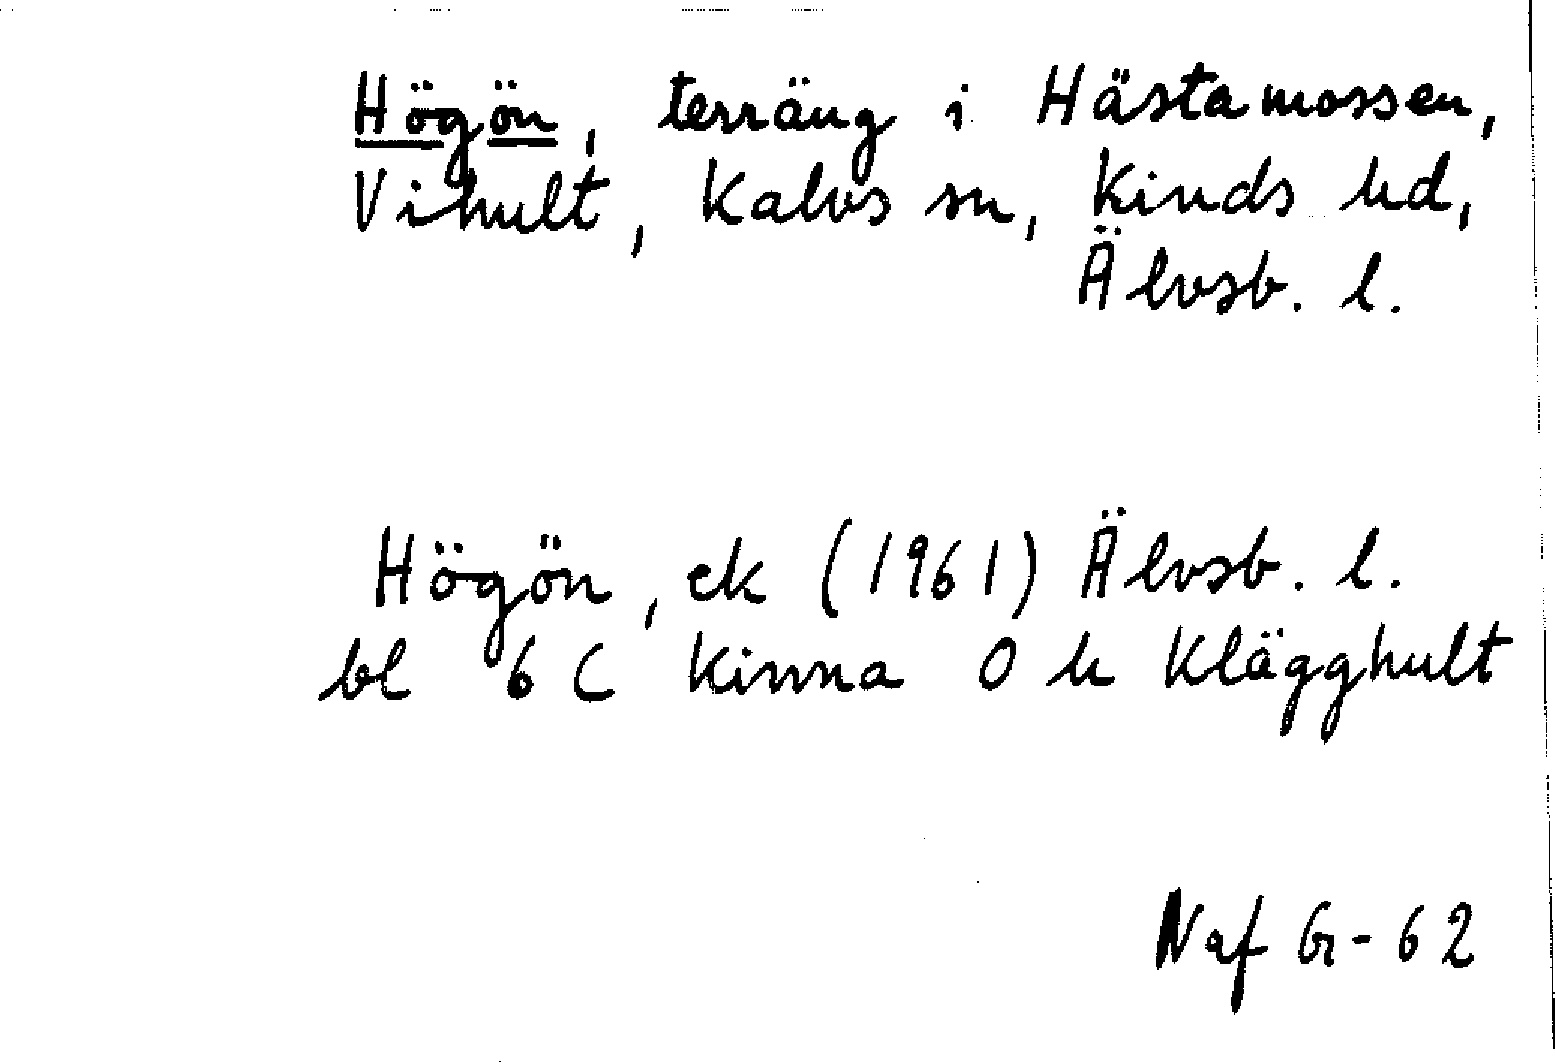 Högön, terräng i Hästamossen,
Vihult, Kalvs sn, Kinds hd,
Älvsb. l.
Högön, ek (1961) Älvsb. l.
bl 6 C Kinna O h Klägghult
Naf Gr-62